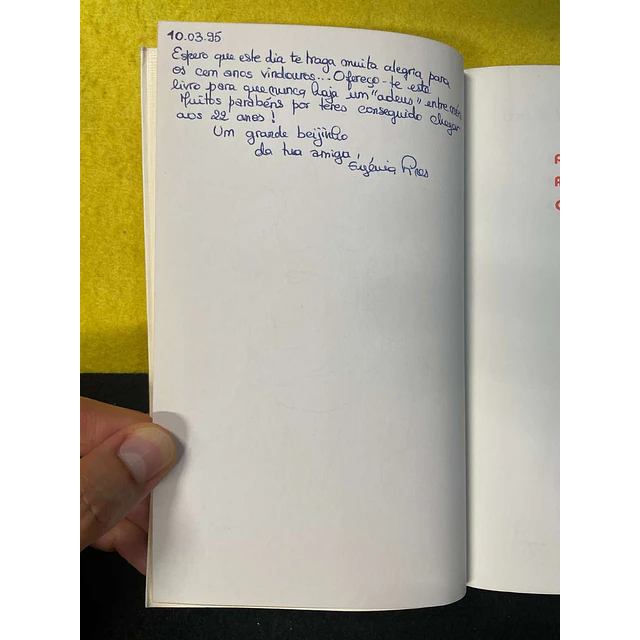 10.03.95
Espero que este dia te traga muita alegria para
os cem anos vindouros... Ofereço-te este
livro para que nunca haja um "adeus" entre nós.
Muitos parabéns por teres conseguido chegar
aos 22 anos!
Um grande beijinho
da tua amiga,
Eugénia